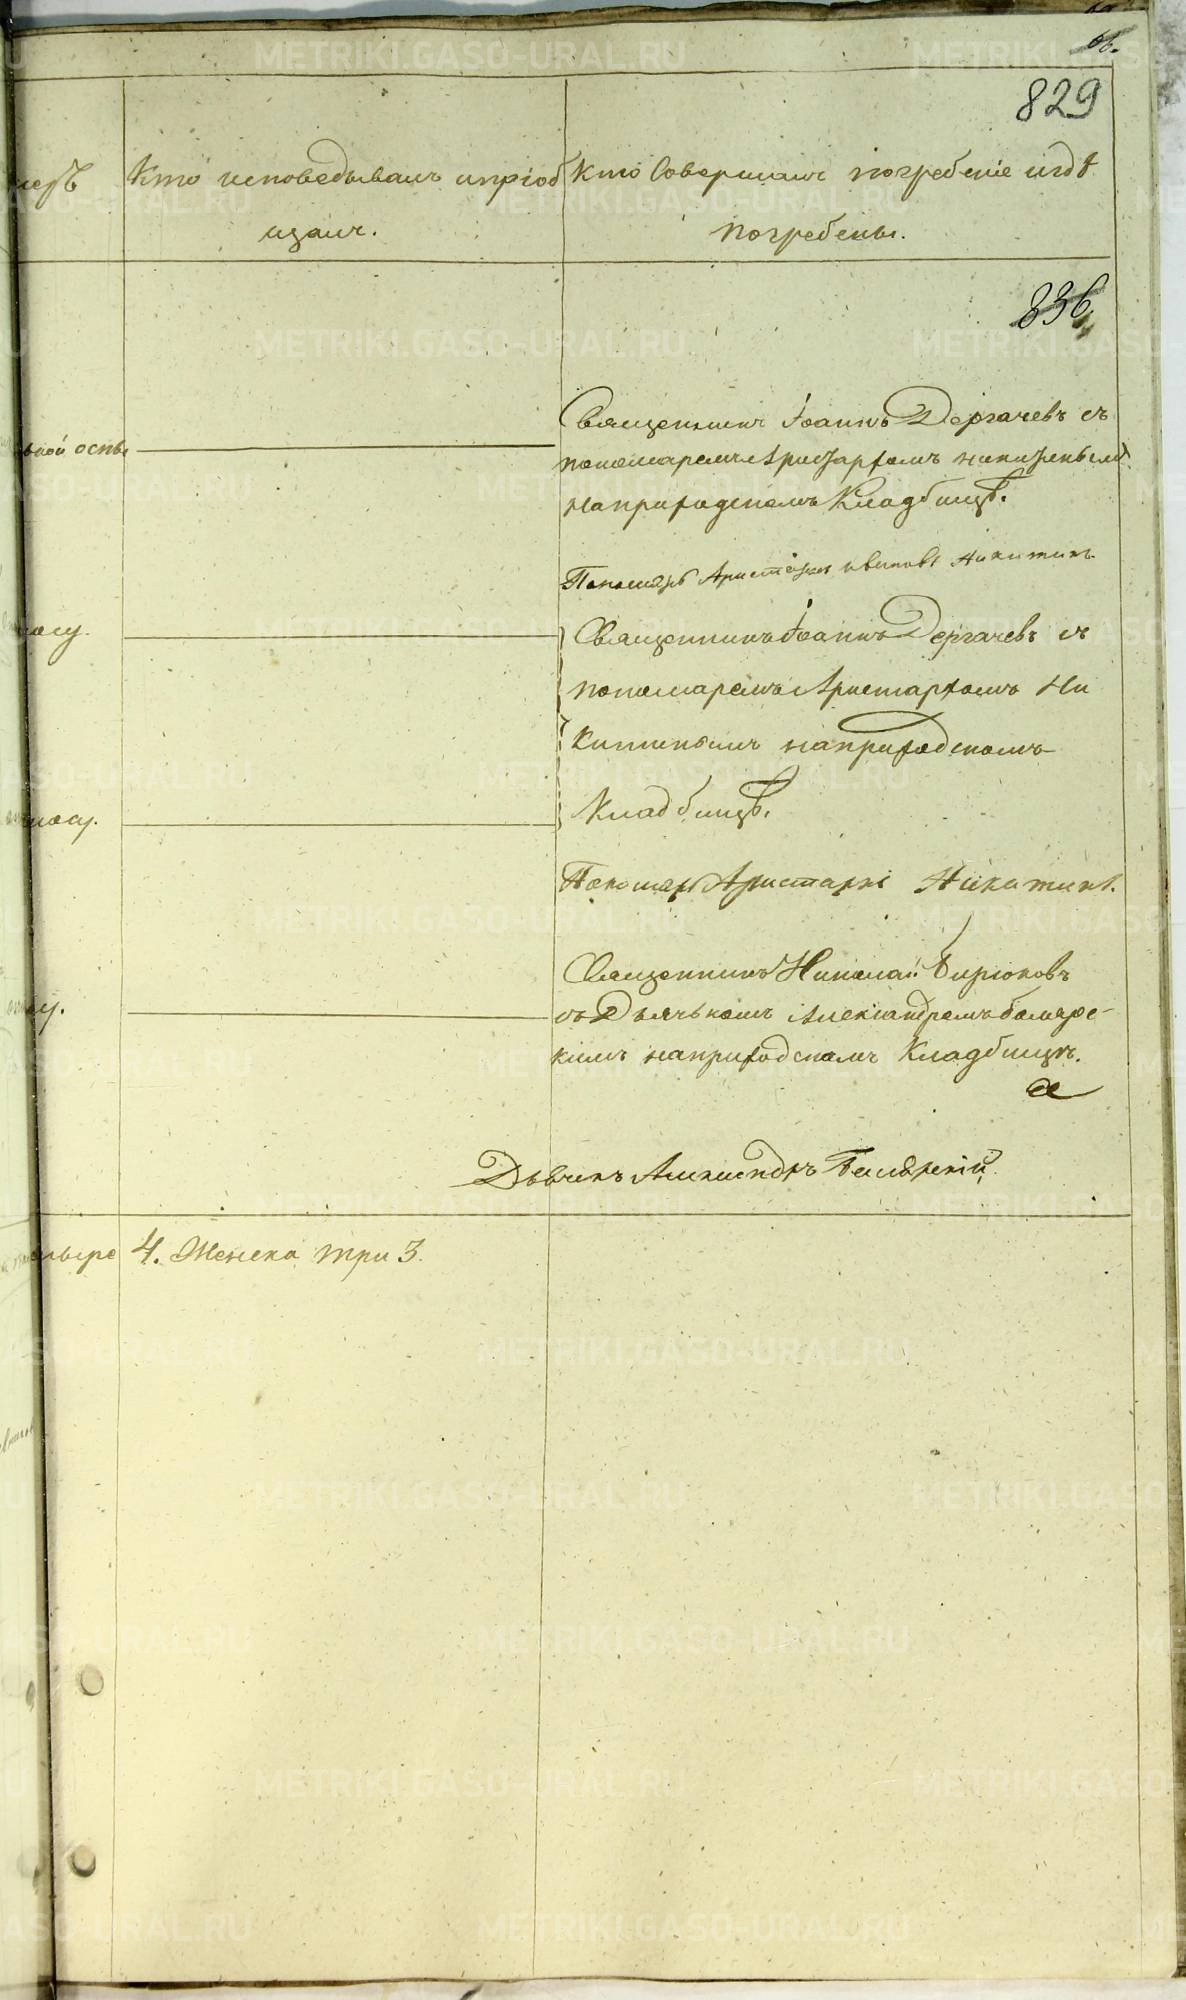 66.
829
Кто исповедывалъ и пріоб
щалъ.
Кто Совершалъ погребеніе и гдѣ
погребены.
836
Священникъ Іоаннъ Дергачевъ съ
пономаремъ Аристархомъ никитинымъ
на приходскомъ Кладбищѣ.
ной оспы
Пономарь Аристархъ Никитинъ
Священникъ Іоаннъ Дергачевъ съ
пономаремъ Аристархомъ Ни
китинымъ на приходскомъ
Кладбищѣ.
Пономарь Аристархъ Никитинъ.
Священникъ Николай Бирюковъ
съ Дьячькомъ Александромъ боляре-
кимъ на приходскомъ Кладбищѣ.
Дьячекъ Александръ Болярскій
4. Женска три 3.
METRIKI.GASO-URAL.RU